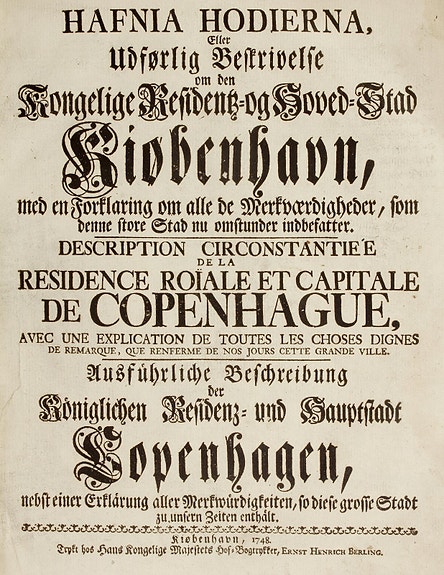 HAFNIA HODIERNA,
Eller
Udførlig Beskrivelse
om den
Kongelige Residentz-og Hoved-Stad
Kiøbenhavn,
med en Forklaring om alle de Merkværdigheder, som
denne store Stad nu omstunder indbefatter.
DESCRIPTION CIRCONSTANTIEÉ
DE LA
RESIDENCE ROÏALE ET CAPITALE
DE COPENHAGUE,
AVEC UNE EXPLICATION DE TOUTES LES CHOSES DIGNES
DE REMARQUE, QUE RENFERME DE NOS JOURS CETTE GRANDE VILLE.
Ausführliche Beschreibung
der
Königlichen Residenz- und Hauptstadt
Copenhagen,
nebst einer Erklärung aller Merkwürdigkeiten, so diese grosse Stadt
zu unsern Zeiten enthält.
Kiøbenhavn, 1748.
Trykt hos Hans Kongelige Majestets Hof-Bogtrykker, ERNST HENRICH BERLING.